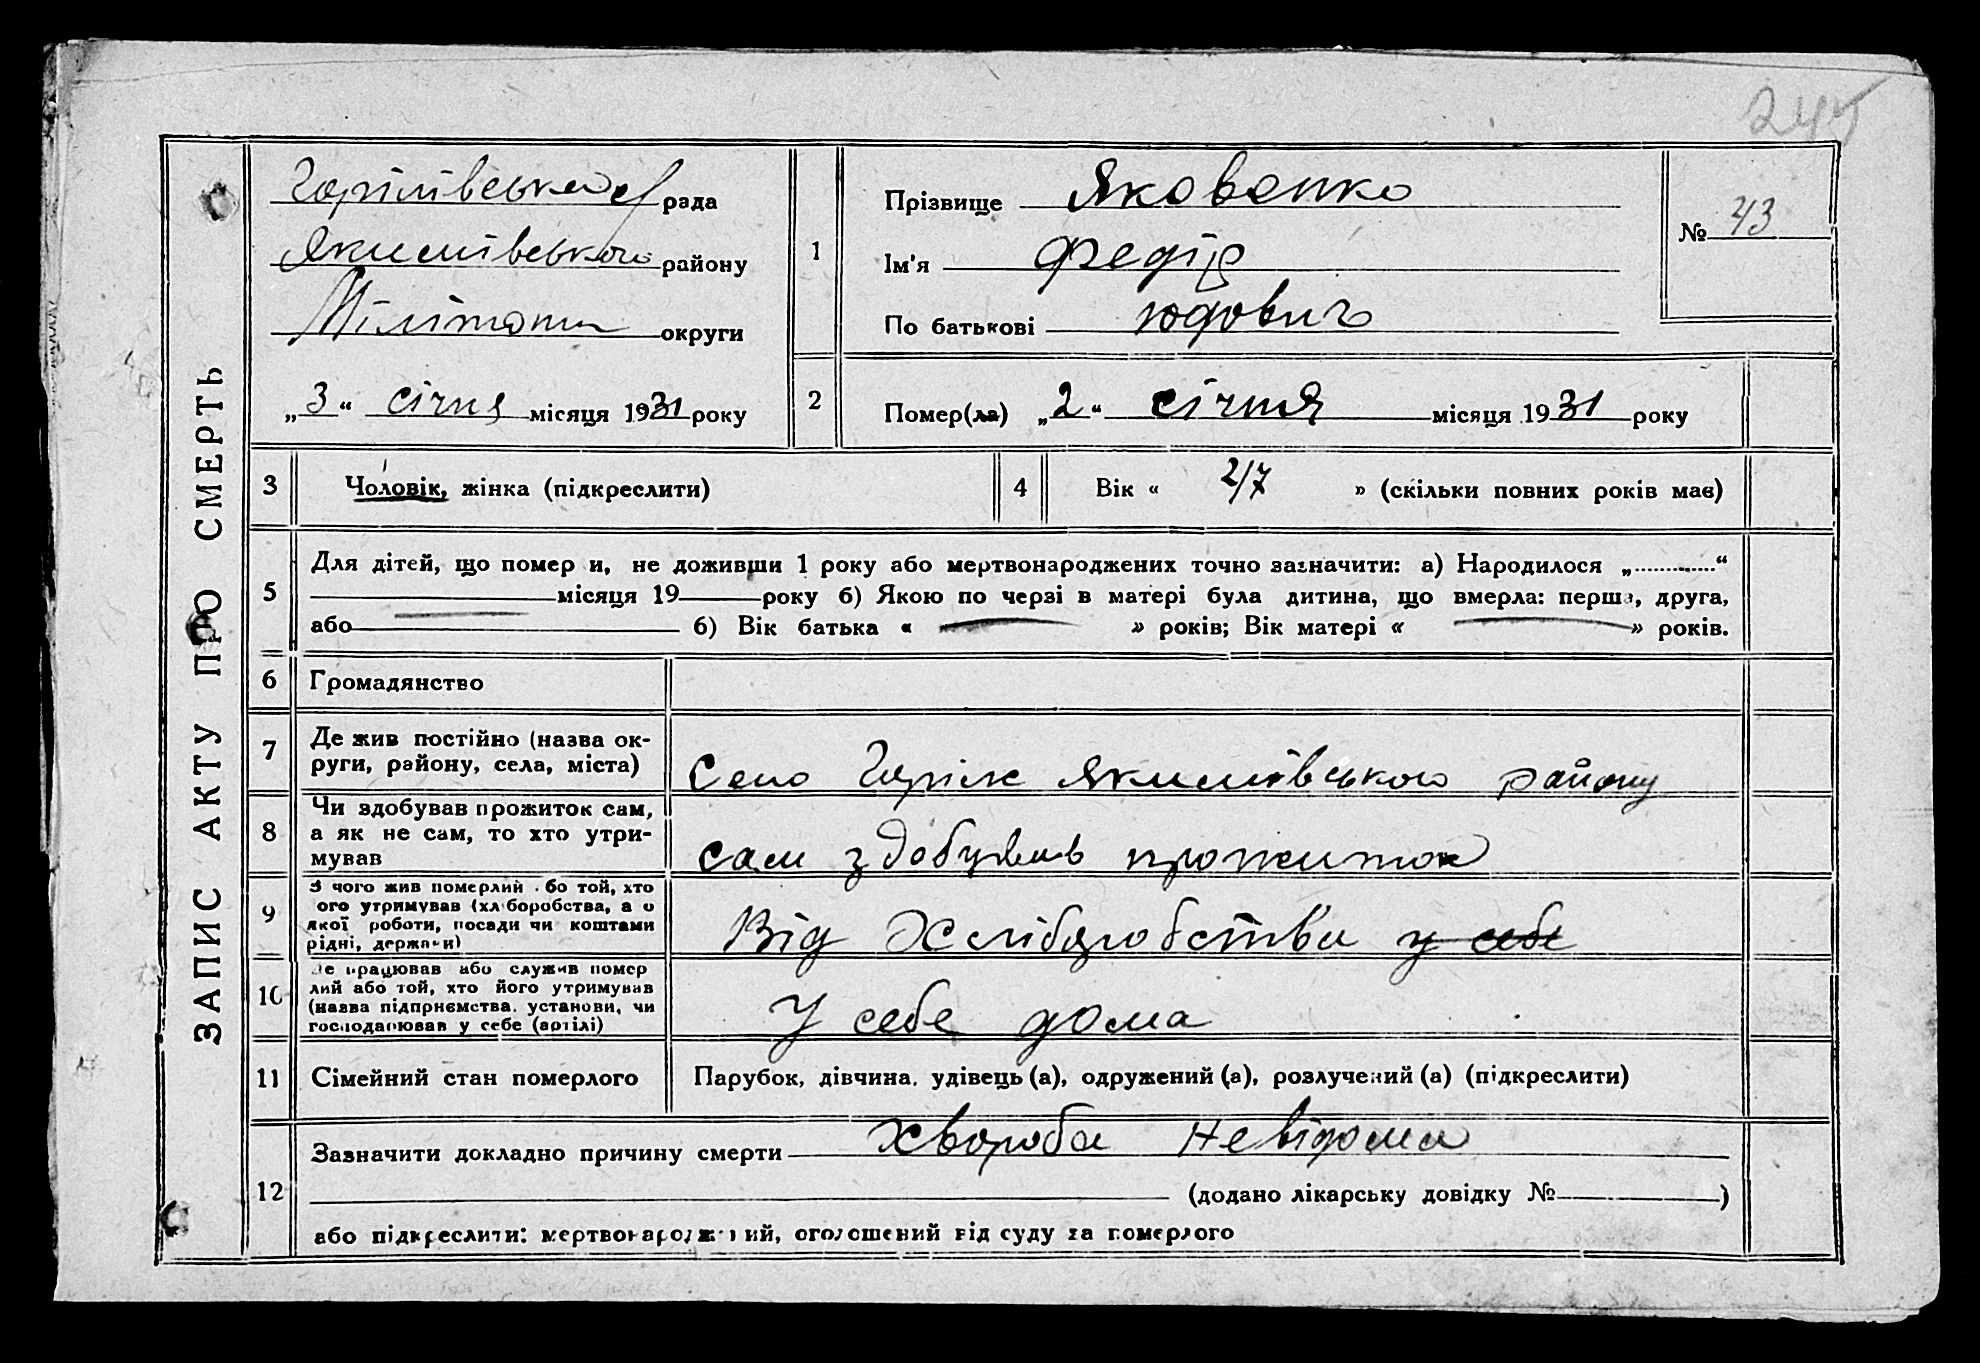 245
ЗАПИС АКТУ ПРО СМЕРТЬ
Горілівська с/рада
Якимівського району
Мілітоп. округи
„3“ січня місяця 1931 року
1
Прізвище Яковенко
Ім'я Федір
По батькові Юдович
№ 43
2
Помер(ла) „2“ січня місяця 1931 року
3 Чоловік, жінка (підкреслити)
4 Вік « 27 » (скільки повних років має)
5
Для дітей, що помер и, не доживши 1 року або мертвонароджених точно зазначити: а) Народилося „ “
місяця 19 року б) Якою по черзі в матері була дитина, що вмерла: перша, друга,
або б) Вік батька « » років; Вік матері « » років.
6 Громадянство
7 Де жив постійно (назва ок-
руги, району, села, міста)
Село Горіле Якимівського району
8 Чи здобував прожиток сам,
а як не сам, то хто утри-
мував
сам здобував прожиток
9 З чого жив померлий або той, хто
його утримував (хліборобства, а о
якої роботи, посади чи коштами
рідні, держави)
Від Хліборобства у себе
10 Де працював або служив помер
лий або той, хто його утримував
(назва підприємства, установи, чи
господарював у себе (артілі)
У себе дома
11 Сімейний стан померлого
Парубок, дівчина, удівець (а), одружений (а), розлучений (а) (підкреслити)
12
Зазначити докладно причину смерти Хвороба невідома
(додано лікарську довідку № )
або підкреслити: мертвонароджений, оголошений від суду за померлого